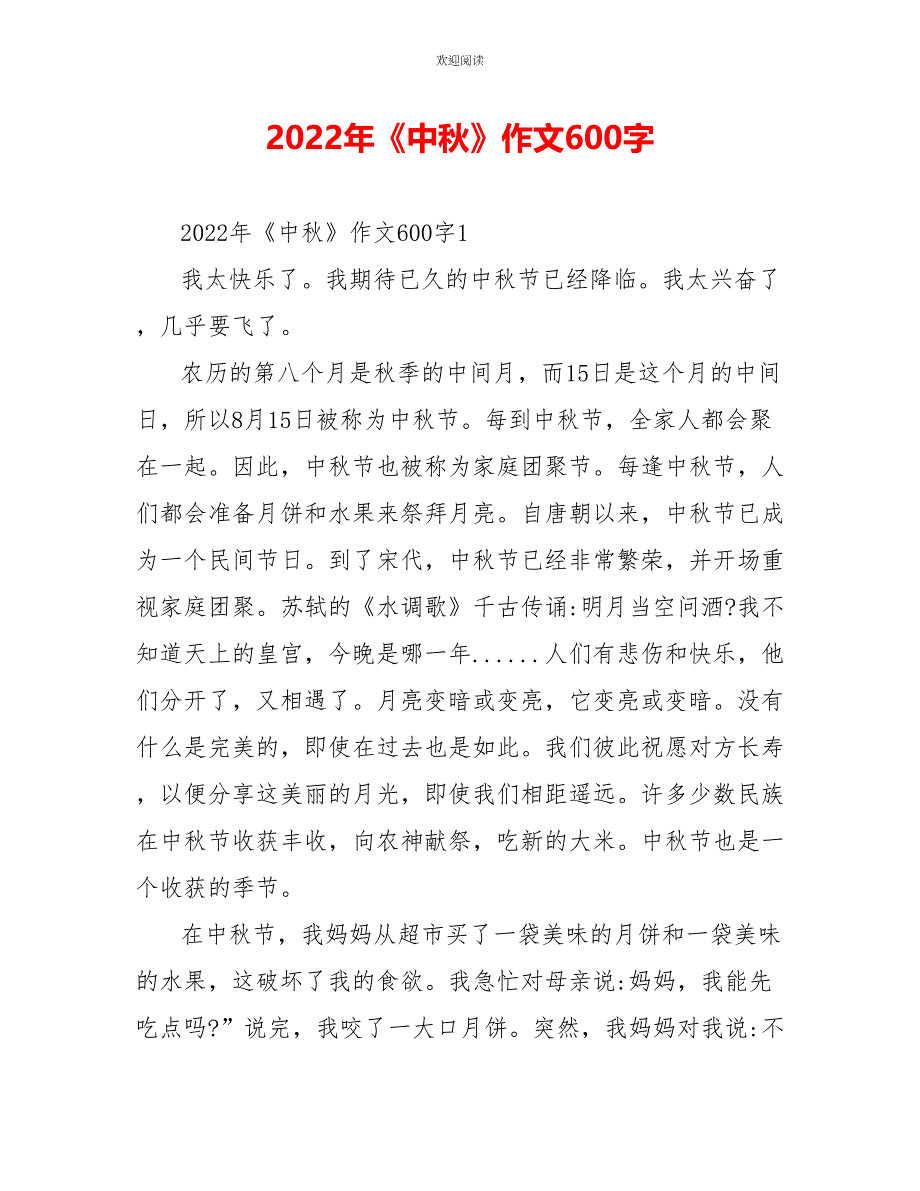 欢迎阅读
2022年《中秋》作文600字
2022年《中秋》作文600字1
我太快乐了。我期待已久的中秋节已经降临。我太兴奋了
，几乎要飞了。
农历的第八个月是秋季的中间月，而15日是这个月的中间
日，所以8月15日被称为中秋节。每到中秋节，全家人都会聚
在一起。因此，中秋节也被称为家庭团聚节。每逢中秋节，人
们都会准备月饼和水果来祭拜月亮。自唐朝以来，中秋节已成
为一个民间节日。到了宋代，中秋节已经非常繁荣，并开场重
视家庭团聚。苏轼的《水调歌》千古传诵:明月当空问酒?我不
知道天上的皇宫，今晚是哪一年......人们有悲伤和快乐，他
们分开了，又相遇了。月亮变暗或变亮，它变亮或变暗。没有
什么是完美的，即使在过去也是如此。我们彼此祝愿对方长寿
，以便分享这美丽的月光，即使我们相距遥远。许多少数民族
在中秋节收获丰收，向农神献祭，吃新的大米。中秋节也是一
个收获的季节。
在中秋节，我妈妈从超市买了一袋美味的月饼和一袋美味
的水果，这破坏了我的食欲。我急忙对母亲说:妈妈，我能先
吃点吗?”说完，我咬了一大口月饼。突然，我妈妈对我说:不